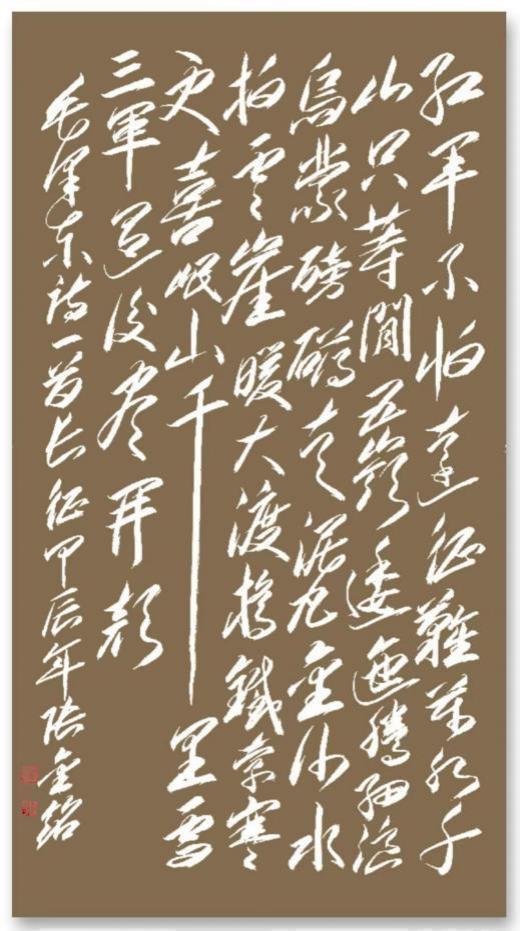 红军不怕遠征難萬水千
山只等間五嶺逶迤騰細浪
烏蒙磅礴走泥丸金沙水
拍雲崖暖大渡橋鐵索寒
更喜岷山千里雪
三軍過後尽開颜
毛澤东詩一首长征甲辰年金